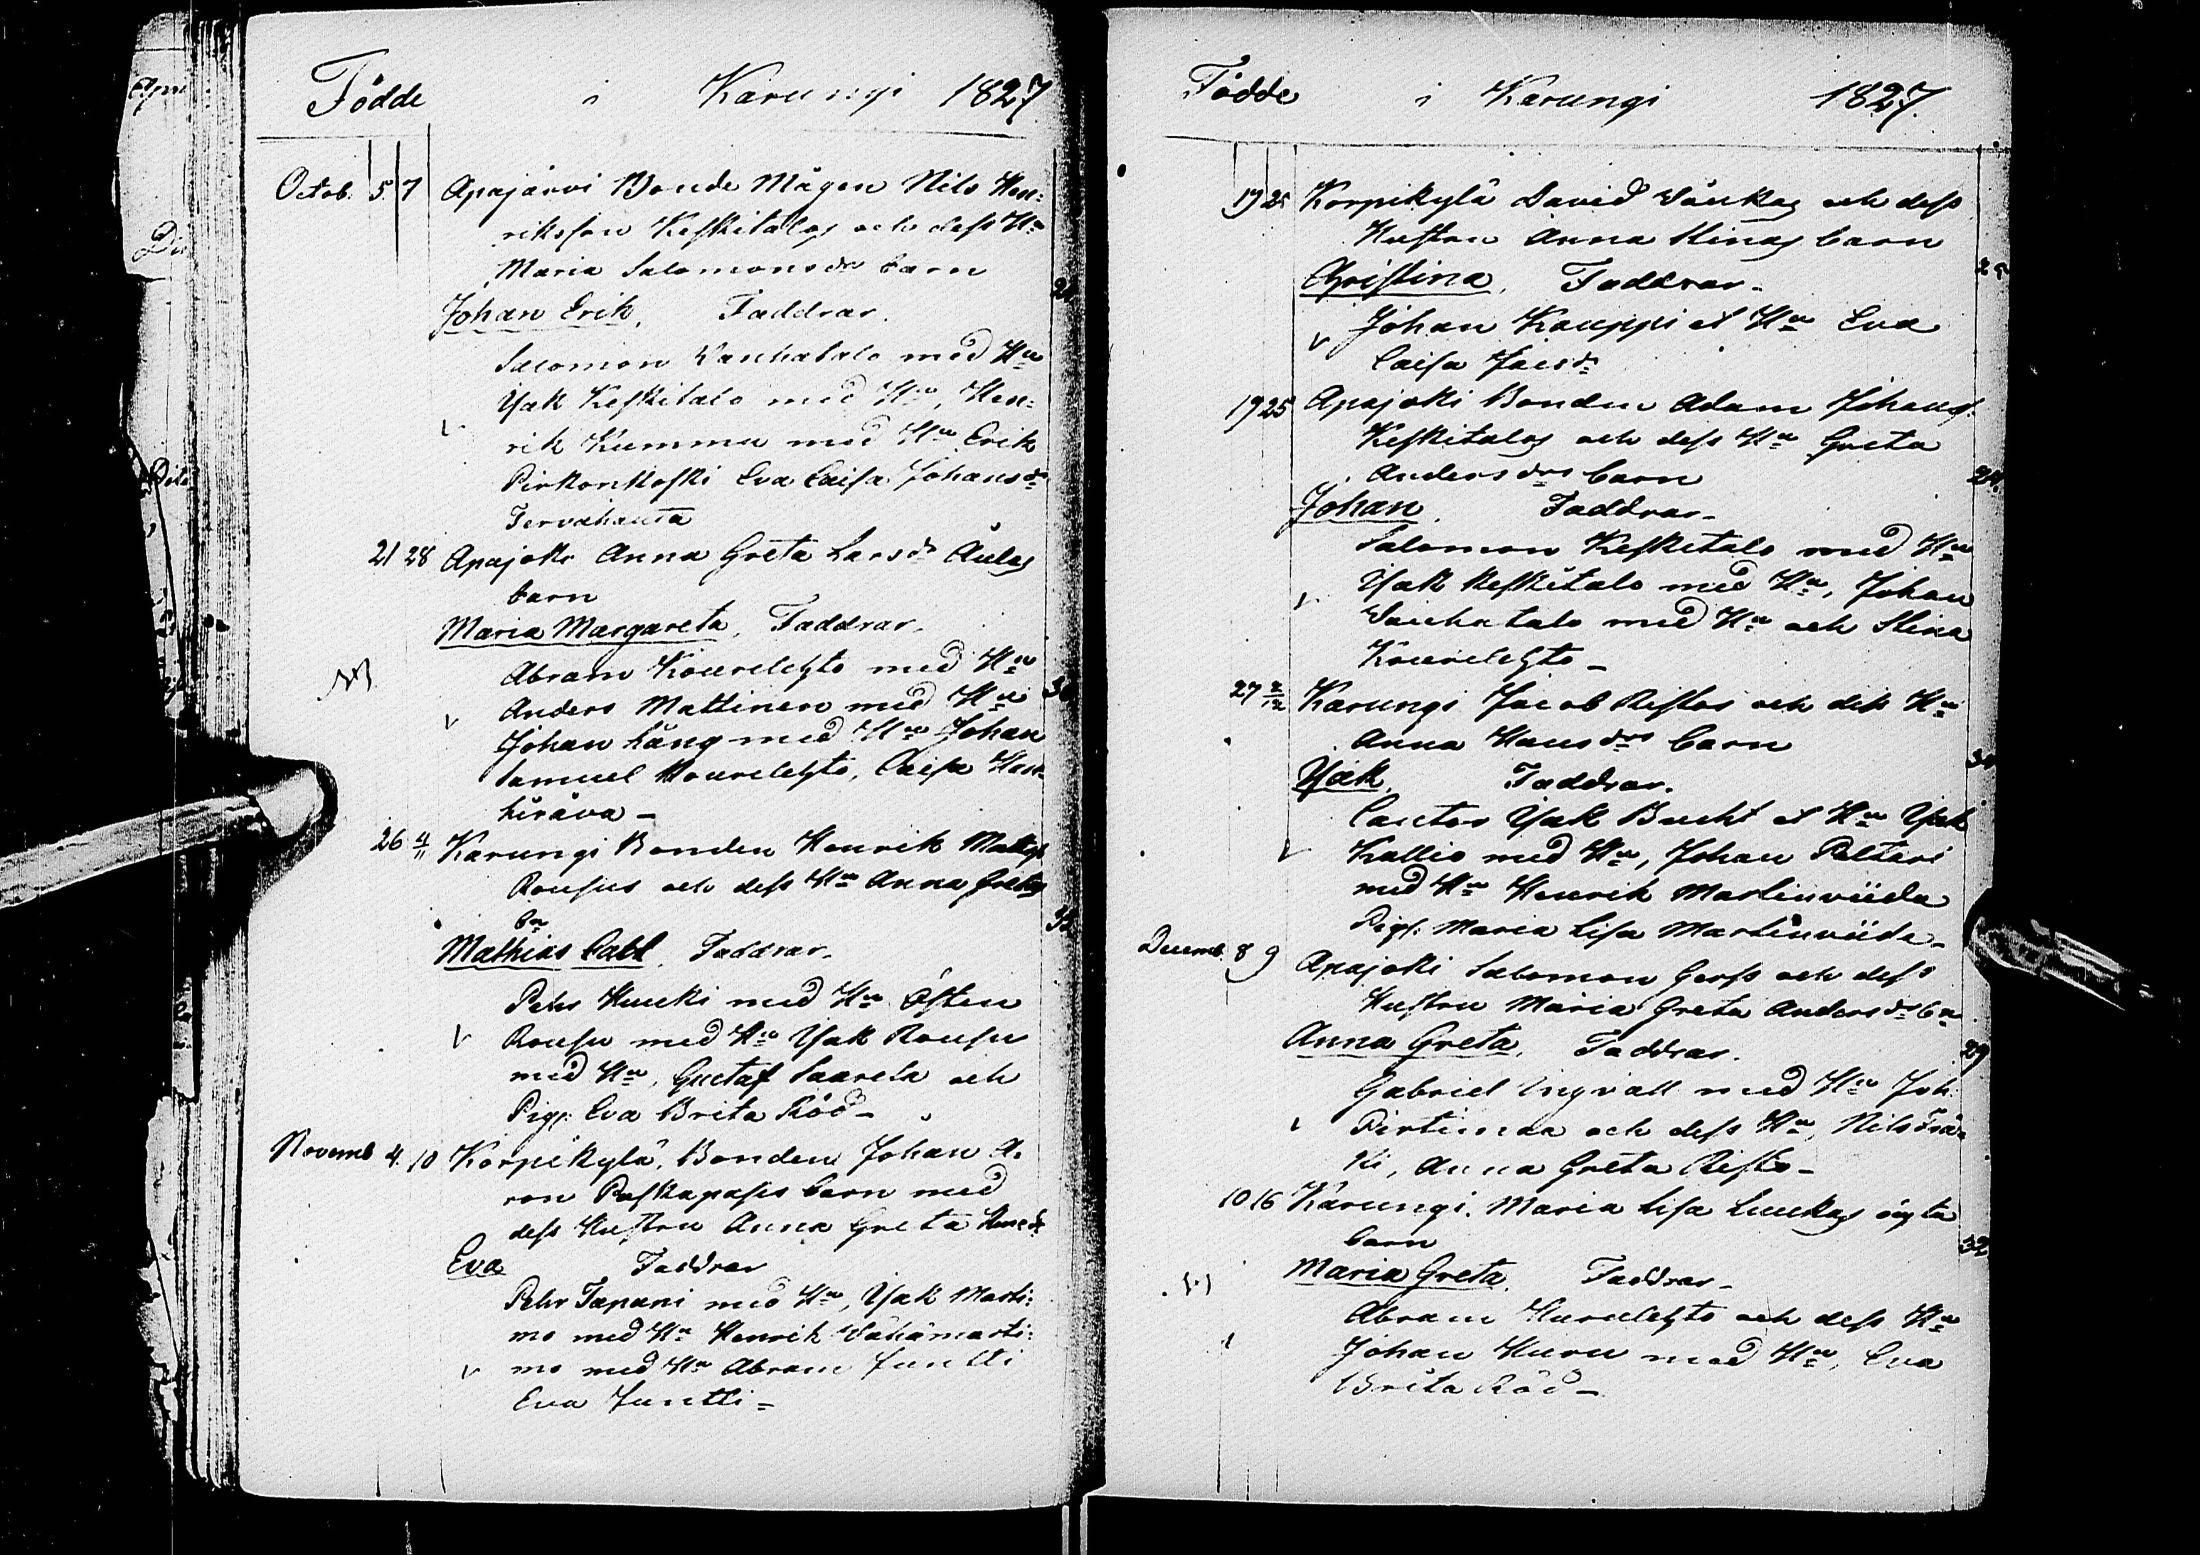 Födde i Karungi 1827
Octob. 5 7 Apajärvi Bonde Mågen Nils Hen-
riksson Keskitalos och dess Hu
Maria Salomonsdr barn
Johan Erik. Faddrar.
Salomon Vanhatalo med Hu
Isak Keskitalo med Hu, Hen-
rik Kummu med Hu Erik
Pirkonkoski Eva Caisa Johansdr
Tervahauta
21 28 Apajoki Anna Greta Larsdr
barn
Maria Margareta. Faddrar.
Abram Kourilehto med Hu
Anders Mattinen med Hu
Johan Lång med Hu Johan
Samuel Kourilehto, Caisa
26 4/11 Karungi Bonden Henrik Matts
Rousus och dess Hu Anna Gretas
bn
Mathias Carl. Faddrar.
Pehr Huuki med Hu Östen
Rousu med Hu Isak Rousu
med Hu, Gustaf Saarela och
Pig. Eva Brita Röd-
Novemb 4. 10 Korpikylä, Bonden Johan A-
ron Paskapasis barn med
dess Hustru Anna Greta
Eva Faddrar
Pehr Tapani med Hu, Isak Marti-
mo med Hu Henrik Vähämarti-
mo med Hu Abram Juntti
Eva Juntti-
Födde i Karungi 1827.
19 25 Korpikylä David och dess
Hustru Anna Stinas barn
Christina. Faddrar-
Johan Kauppi et Hu Eva
Caisa Jacsdr
19 25 Apajoki Bonden Adam Johans
Keskitalos och dess Hu Greta
Andersdrs barn
Johan. Faddrar-
Salomon Keskitalo med Hu
Isak Keskitalo med Hu, Johan
Vanhatalo med Hu och Stina
Kourilehto-
27 2/12 Karungi Jacob Ristos och dess Hu
Anna Hansdrs barn
Isak. Faddrar.
Cantor Isak Bucht et Hu Isak
Kallio med Hu, Johan Pelteri
med Hu Henrik Martinviida
Pig. Maria Lisa Martinviida-
Decemb. 8 9 Apajoki Salomon Gerss och dess
Hustru Maria Greta Andersdr bn
Anna Greta. Faddrar.
Gabriel Ingvall med Hu Joh.
Pirtimaa och dess Hu, Nils
Anna Greta Risto-
10 16 Karungi. Maria Lisa Luukas oägta
barn
Maria Greta. Faddrar-
Abram Hurulehto och dess Hu
Johan Huru med Hu, Eva
Brita Röd-